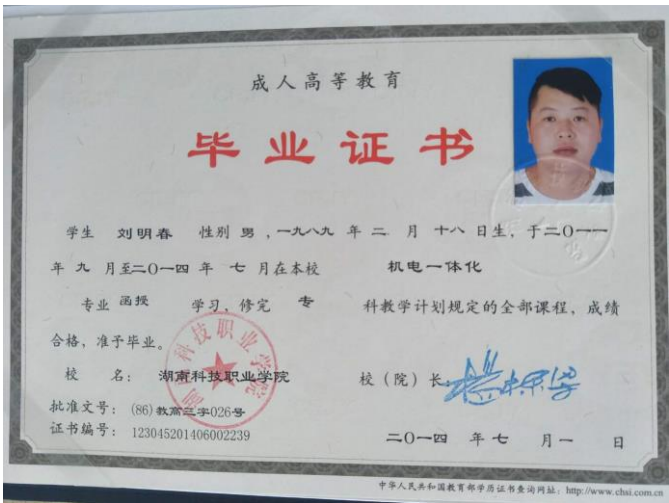 成人高等教育
毕业证书
学生 刘明春 性别 男，一九八九 年 二 月 十八 日生，于二〇一一
年 九 月至二〇一四 年 七 月在本校 机电一体化
专业 函授 学习，修完 专 科教学计划规定的全部课程，成绩
合格，准予毕业。
校 名： 湖南科技职业学院 校（院）长
批准文号： (86)教高三字026号
证书编号： 123045201406002239
二〇一四 年 七 月 一 日
湖南科技职业学院
中华人民共和国教育部学历证书查询网址：http://www.chsi.com.cn